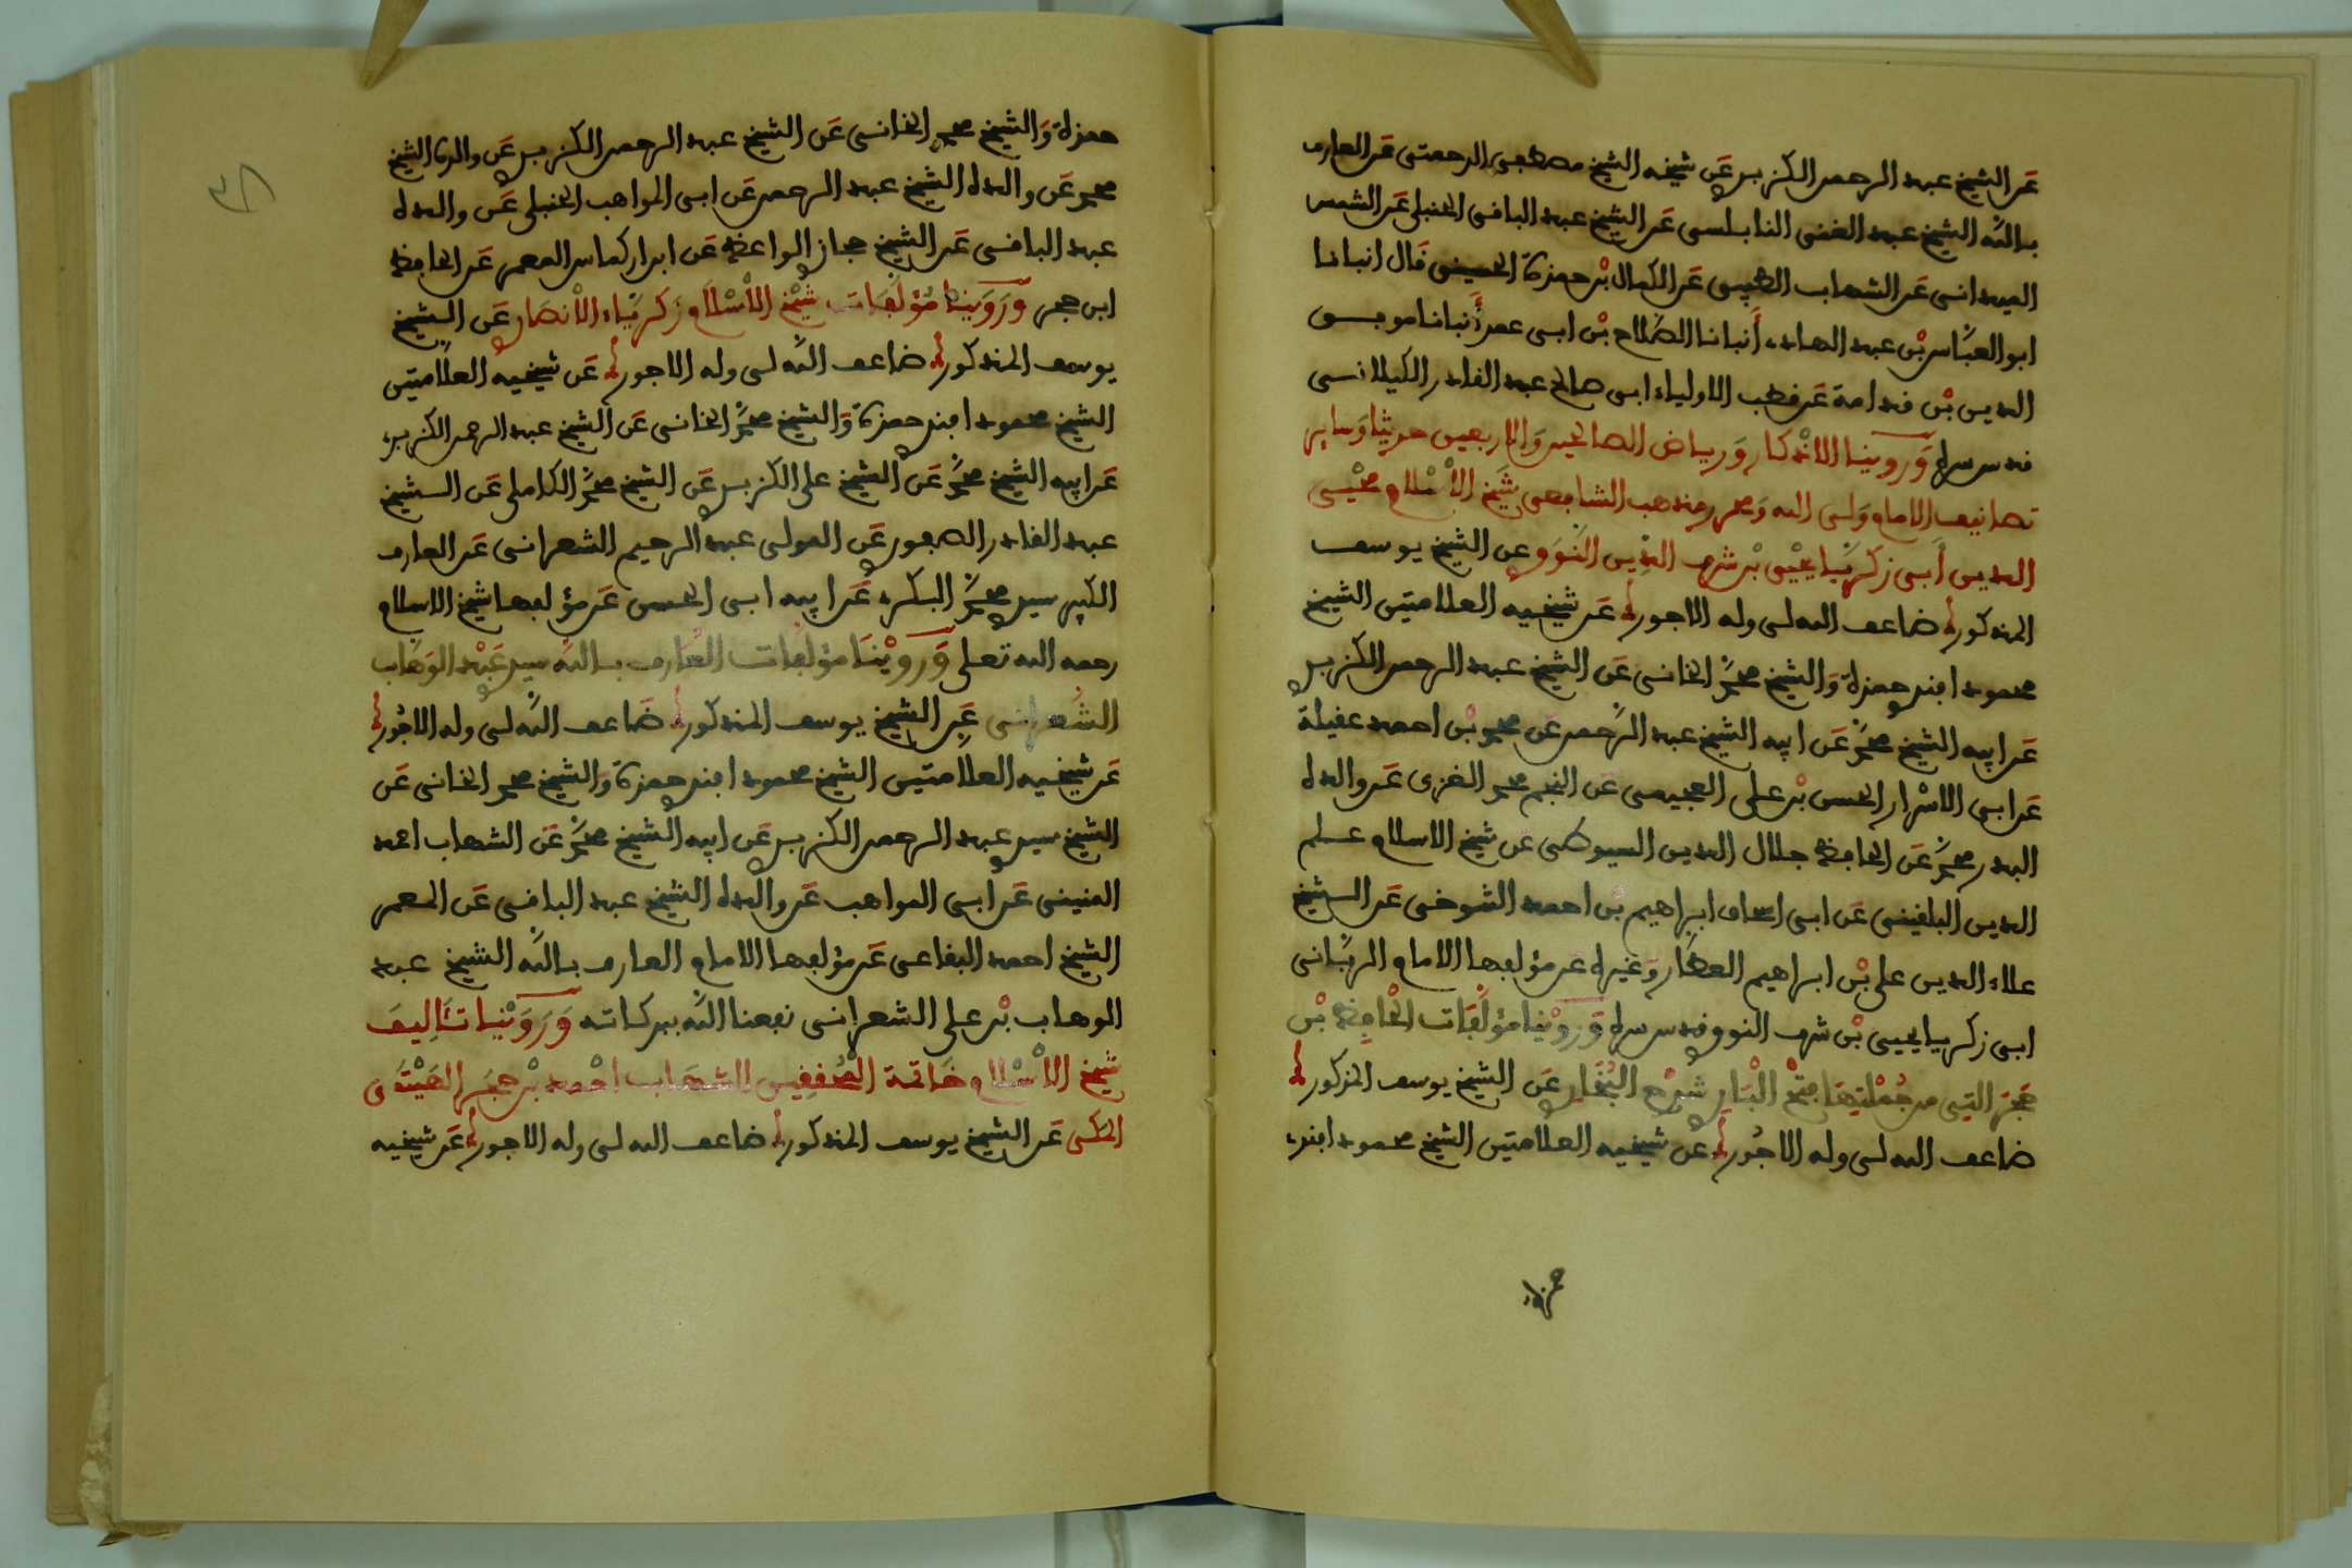 عن الشيخ عبد الرحمن الكزبري عن شيخه الشيخ مصطفى الرحمتي عن العارف
بالله الشيخ عبد الغني النابلسي عن الشيخ عبد الباقي الحنبلي عن الشمس
الميداني عن الشهاب الطيبي عن الكمال بن حمزة الحسيني قال انبانا
ابو العباس بن عبد الهادي أنبانا الصلاح بن ابي عمر أنبانا موفق
الدين بن قدامة عن قطب الاولياء ابي صالح عبد القادر الكيلاني
قدس سره وروينا الاذكار ورياض الصالحين والاربعين حديثا وساير
تصانيف الامام ولي الله ومحرر مذهب الشافعي شيخ الإسلام محيي
الدين أبي زكريا يحيى بن شرف الدين النووي عن الشيخ يوسف
المذكور ضاعف الله لي وله الاجور عن شيخيه العلامتين الشيخ
محمود افندي حمزة والشيخ محمد الخاني عن الشيخ عبد الرحمن الكزبري
عن ابيه الشيخ محمد عن ابيه الشيخ عبد الرحمن عن محمد بن احمد عقيلة
عن ابي الاسرار الحسن بن علي العجيمي عن النجم محمد الغزي عن والده
البدر محمد عن الحافظ جلال الدين السيوطي عن شيخ الاسلام علم
الدين البلقيني عن ابي اسحاق ابراهيم بن احمد التنوخي عن الشيخ
علاء الدين علي بن ابراهيم العطار وغيره عن مؤلفها الامام الرباني
ابي زكريا يحيى بن شرف النووي قدس سره وروينا مؤلفات الحافظ بن
حجر التي من جملتها فتح الباري شرح البخاري عن الشيخ يوسف المذكور
ضاعف الله لي وله الاجور عن شيخيه العلامتين الشيخ محمود افندي
حمزة
٣٨
حمزة والشيخ محمد الخاني عن الشيخ عبد الرحمن الكزبري عن والده الشيخ
محمد عن والده الشيخ عبد الرحمن عن ابي المواهب الحنبلي عن والده
عبد الباقي عن الشيخ حجازي الواعظ عن ابن اركماس المعمر عن الحافظ
ابن حجر وروينا مؤلفات شيخ الإسلام زكرياء الأنصاري عن الشيخ
يوسف المذكور ضاعف الله لي وله الاجور عن شيخيه العلامتين
الشيخ محمود افندي حمزة والشيخ محمد الخاني عن الشيخ عبد الرحمن الكزبري
عن ابيه الشيخ محمد عن الشيخ علي الكزبري عن الشيخ محمد الكاملي عن الشيخ
عبد القادر الصفوري عن المولى عبد الرحيم الشعراني عن العارف
الكبير سيدي محمد البكري عن ابيه ابي الحسن عن مؤلفها شيخ الاسلام
رحمه الله تعلى وروينا مؤلفات العارف بالله سيدي عبد الوهاب
الشعراني عن الشيخ يوسف المذكور ضاعف الله لي وله الاجور
عن شيخيه العلامتين الشيخ محمود افندي حمزة والشيخ محمد الخاني عن
الشيخ سيدي عبد الرحمن الكزبري عن ابيه الشيخ محمد عن الشهاب احمد
المنيني عن ابي المواهب عن والده الشيخ عبد الباقي عن المعمر
الشيخ احمد البقاعي عن مؤلفها الامام العارف بالله الشيخ عبد
الوهاب بن علي الشعراني نفعنا الله ببركاته وروينا تأليف
شيخ الإسلام خاتمة المحققين الشهاب احمد بن حجر الهيتمي
المكي عن الشيخ يوسف المذكور ضاعف الله لي وله الاجور عن شيخيه